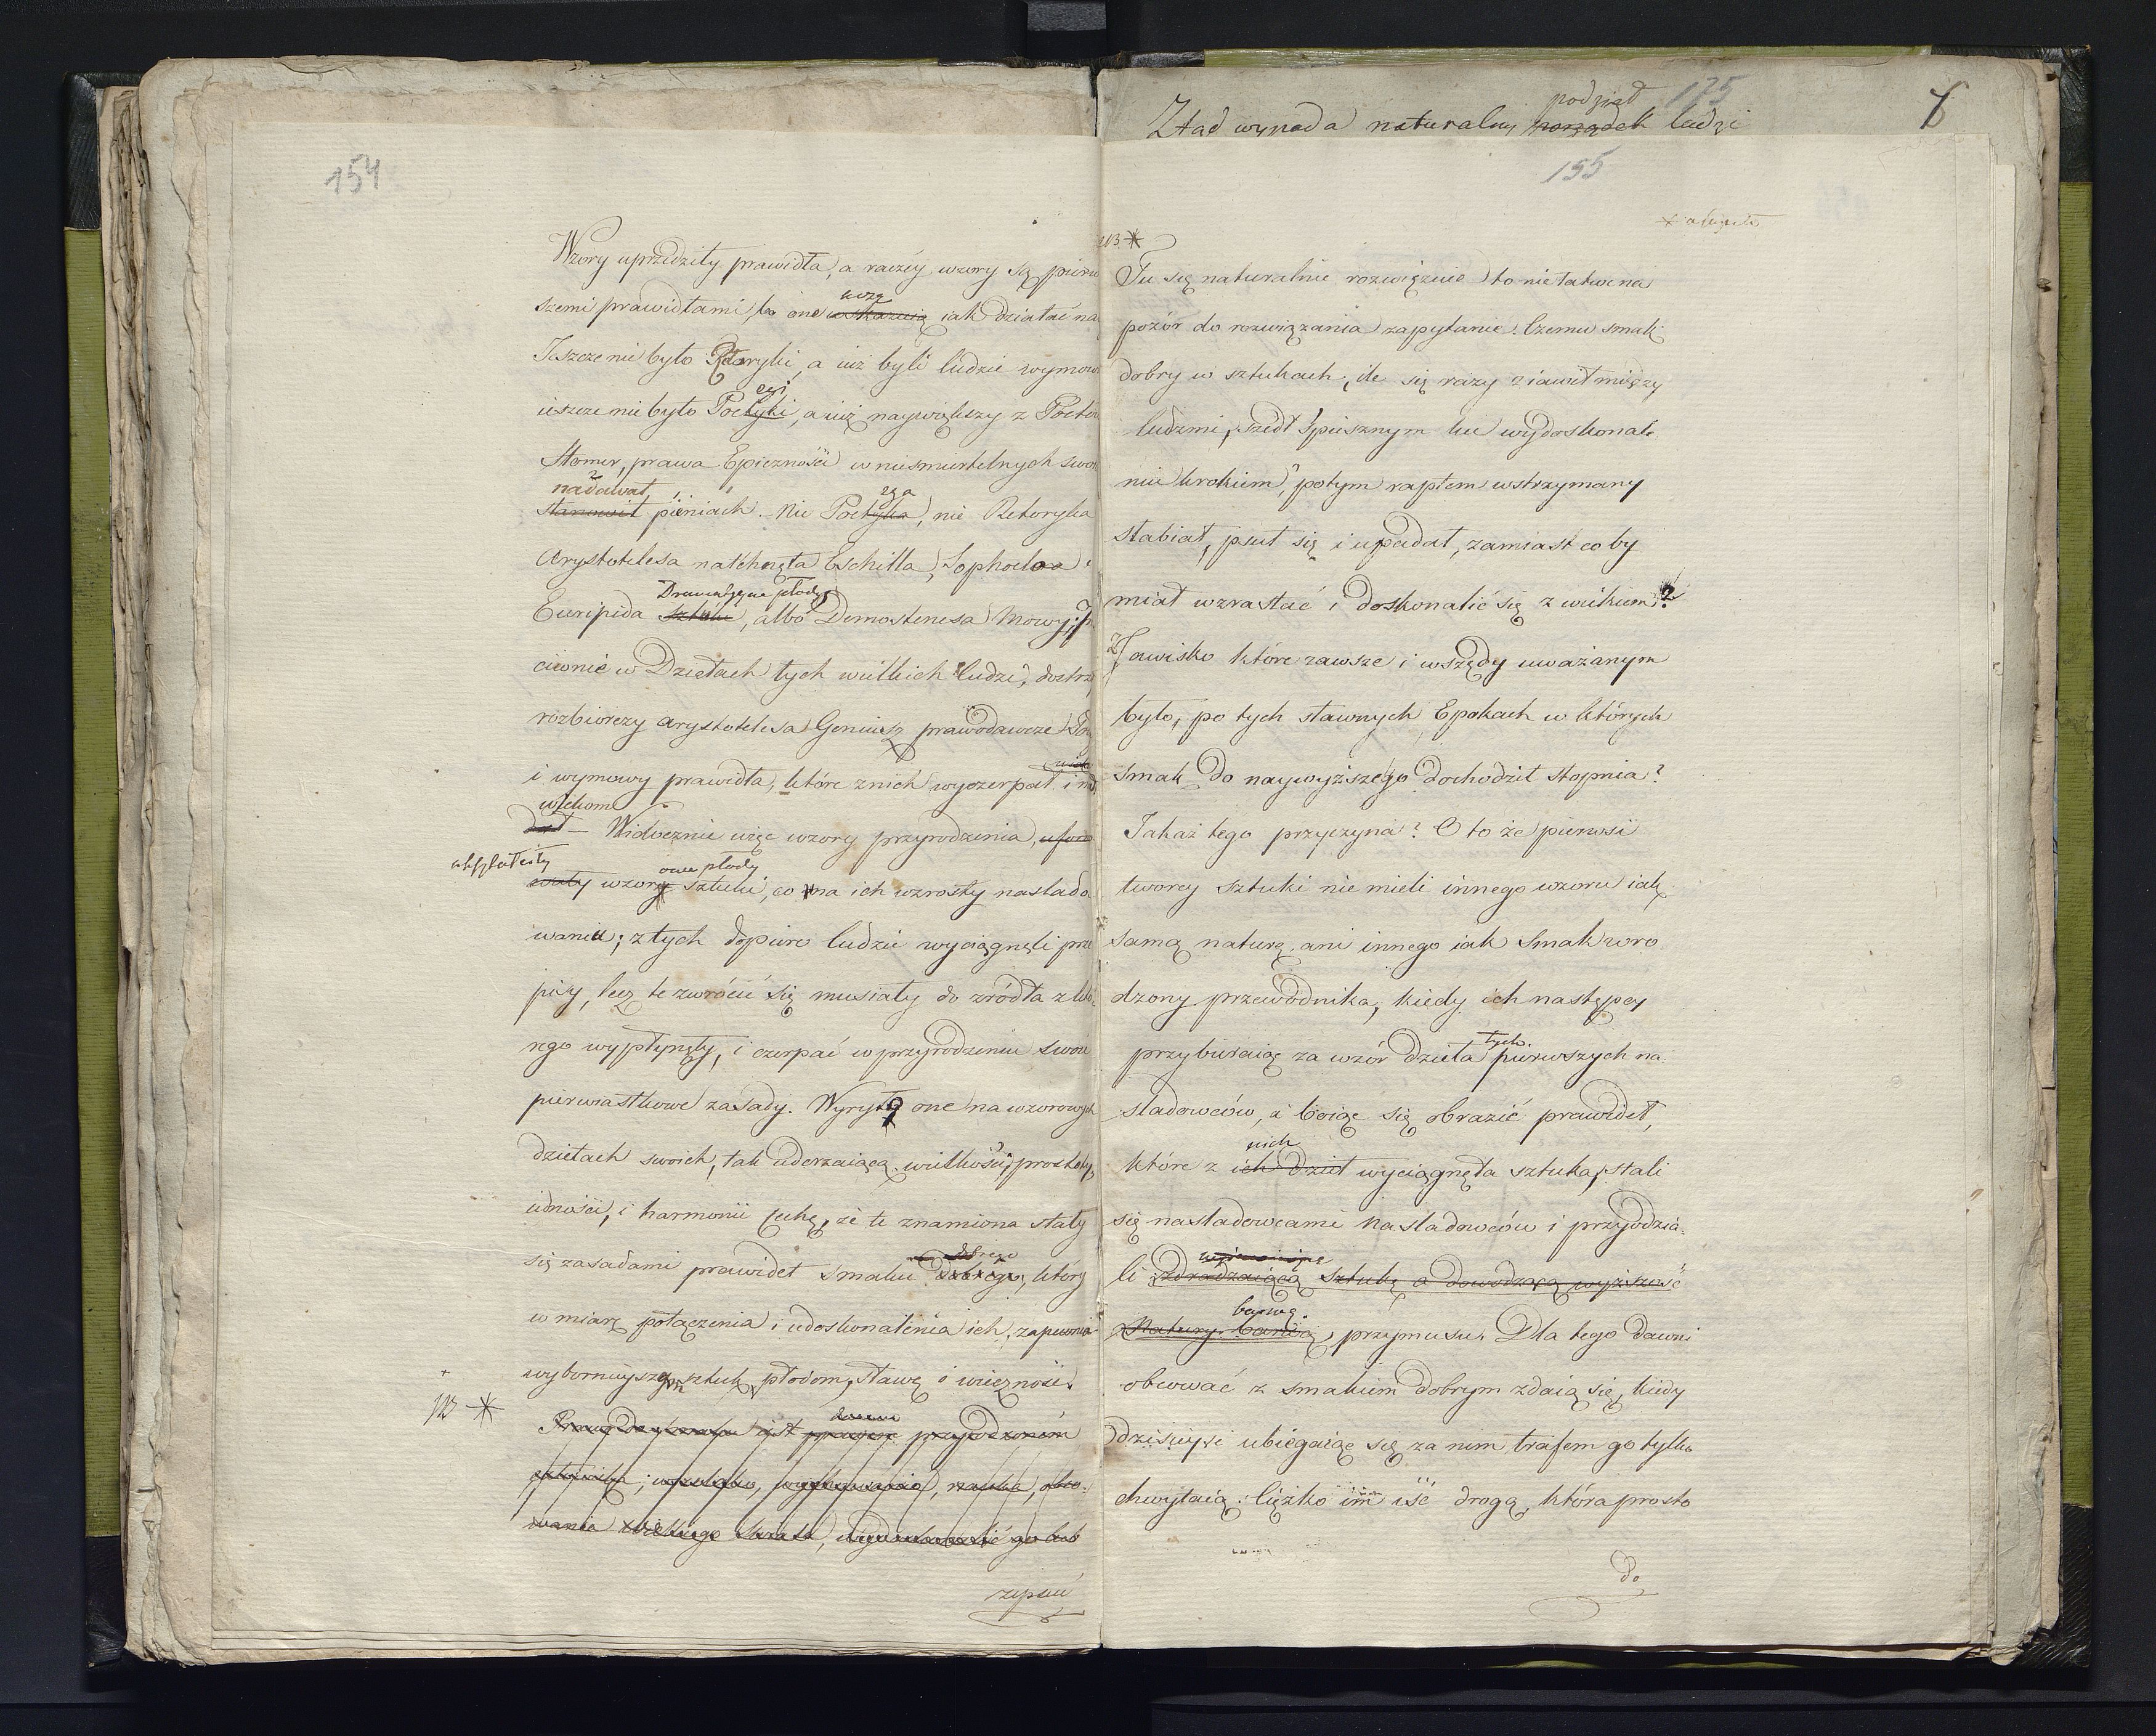 154
Wzory uprzedziły prawidła, a raczéy wzory są pierw
szemi prawidłami, bo one wskazuią iak działać na
Jeszcze nie było Retoryki, a iuż byli ludzie wymow
egi
ieszcze nie było Poetyki, a iuż naywiększy z Poetów
Homer, prawa Epiczności w nieśmiertelnych swoi
nadawał ega
stanowił pieniach. Nie Poetyka, nie Retoryka
Arystotelesa natchnęła Eschilla, Sophocla
Dramatyczne płody
Euripida sztuki, albo Demostenesa Mowy;
ciwnie w Dziełach tych wielkich ludzi, dostrz
rozbiorczy Arystotelesa Geniusz prawodawcze
i wymowy prawidła, które z nich wyczerpał i
wiekom
dał — Widocznie więc wzory przyrodzenia, ufor
ukształciły owe płody
wały wzory sztuki, co na ich wzrosły naślado
waniu; z tych dopiero ludzie wyciągnęli prze
pisy, lecz te zwrócić się musiały do zródła z któ
rego wypłynęły, i czerpać w przyrodzeniu swoie
pierwiastkowe zasady. Wyryło one na wzorowych
dziełach swoich, tak uderzaiącą wielkości, prostoty,
iedności, i harmonii cechę, że te znamiona stały
się zasadami prawideł smaku dobrego, który
w miarę połączenia i udoskonalenia ich, zapewnia
wybornieyszym sztuk płodom, sławę i wieczność.
NB *
iest przyrodzoném
zepsuć
175
podział
Ztąd wypada naturalny porządek ludzi
155
NB *
Tu się naturalnie rozwięzuie to niełatwe na
pozór do rozwiązania zapytanie. Czemu smak
dobry w sztukach, ile się razy ziawił między
ludzmi, szedł spiesznym ku wydoskonale
niu krokiem, potym raptem wstrzymany
słabiał, psuł się i upadał, zamiast coby
miał wzrastać i doskonalić się z wiekiem?
Zjawisko które zawsze i wszędy uważanym
było, po tych sławnych Epokach w których
smak do naywyższego dochodził stopnia?
Jakaż tego przyczyna? Oto że pierwsi
tworcy sztuki nie mieli innego wzoru iak
samą naturę, ani innego iak smak wro
dzony przewodnika, kiedy ich następcy
tych
przybieraiąc za wzór dzieła pierwszych na
sladowców, a boiąc się obrazić prawideł,
nich
które z ich dzieł wyciągnęła sztuka, stali
się nasladowcami nasladowców i przyodzia
li zdradzaiącą sztukę a dowodzącą wyższość
barwą
Natury barwą, przymusu. Dla tego dawni
obcować z smakiem dobrym zdaią się, kiedy
dzisieysi ubiegaiąc się za nim trafem go tylko
chwytaią. Ciężko im iść drogą, która prosto
do